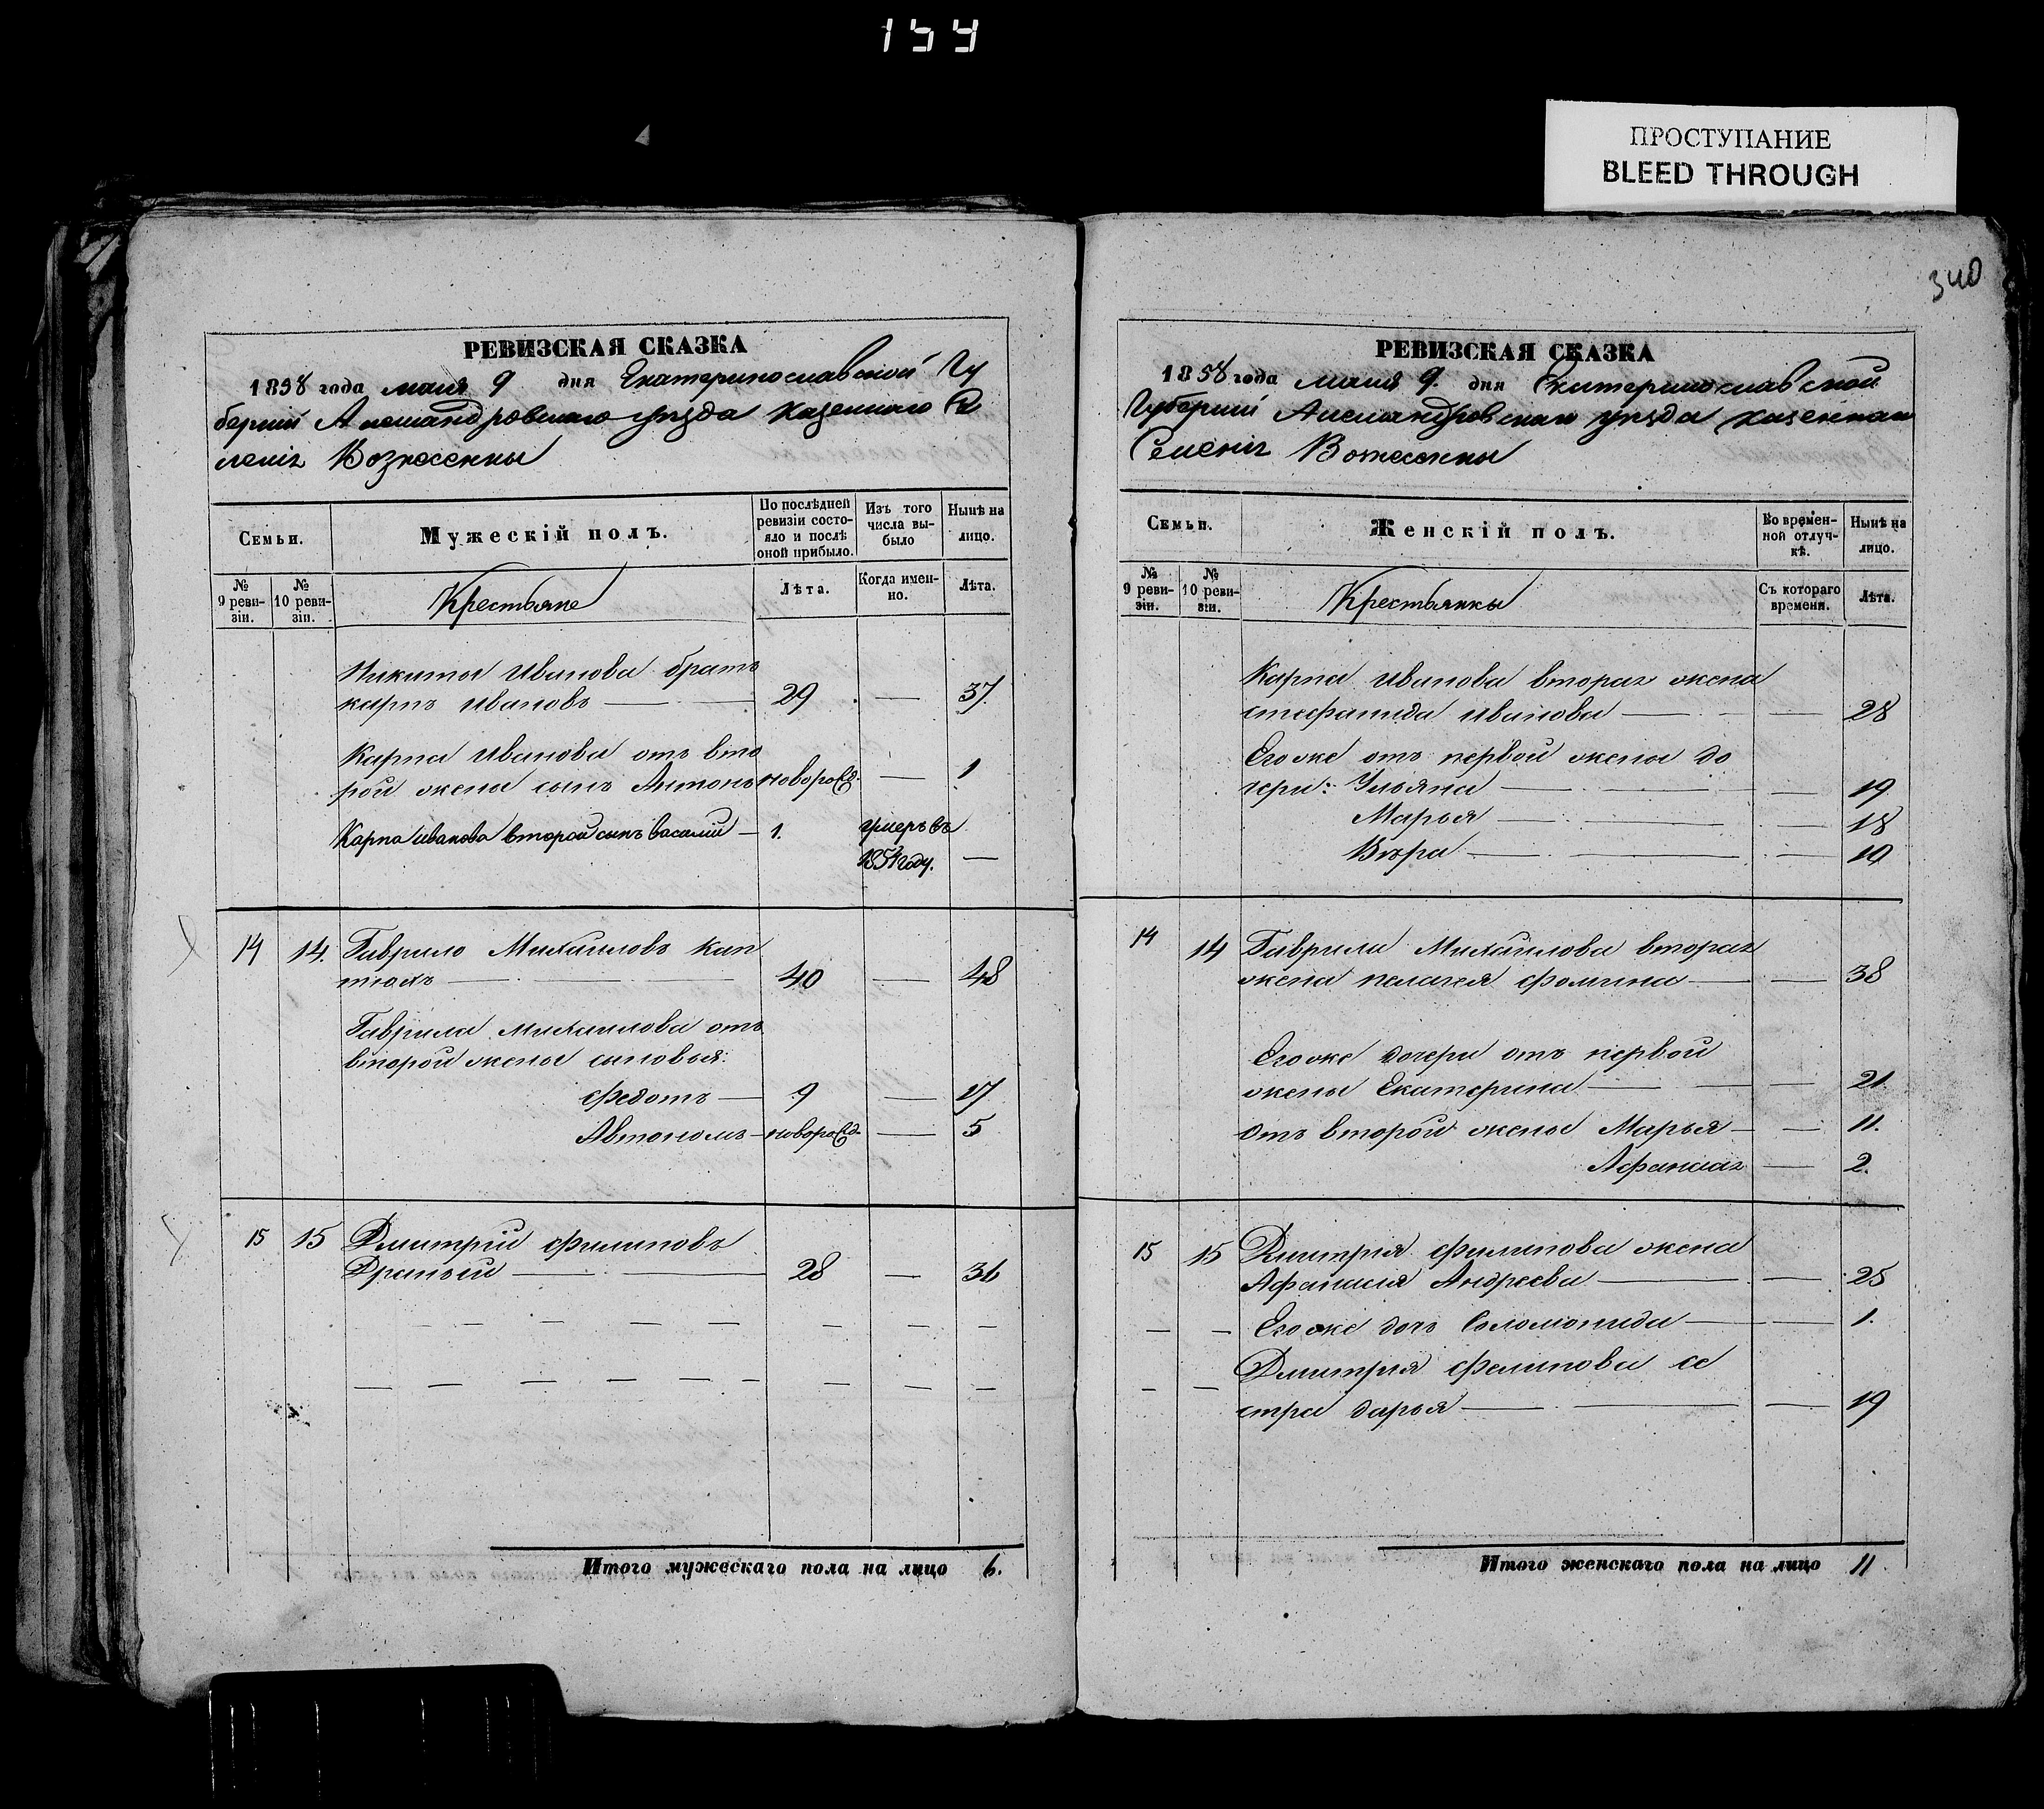 154
ПРОСТУПАНИЕ
BLEED THROUGH
РЕВИЗСКАЯ СКАЗКА
1858 года маия 9 дня Екатеринославской Гу
берніи Александровскаго уѣзда казеннаго Се
ленія Вознесенки
Семьи.
Мужескій полъ.
По послѣдней ревизіи состо-
яло и послѣ оной прибыло.
Изъ того числа вы-
было
Нынѣ на лицо.
№ 9 реви-
зіи.
№ 10 реви-
зіи.
Крестьяне
Лѣта.
Когда имен-
но.
Лѣта.
Никиты Иванова братъ
карпъ ивановъ — 29 — 37.
Карпа Иванова отъ вто
рой жены сынъ Антонъ новорожд. — 1
Карпа иванова второй сынъ василій — 1. умеръ въ
1854 году. —
14 14. Гаврило Михайловъ Кап
тюхъ — 40 — 48
Гаврила Михайлова отъ
второй жены сыновья:
Федотъ — 9 — 17
Автономъ — новорожд. — 5
15 15 Дмитрій Филиповъ
Драный — 28 — 36
Итого мужескаго пола на лицо 6.
340
РЕВИЗСКАЯ СКАЗКА
1858 года маия 9. дня Екатеринославской
Губерніи Александровскаго уѣзда казеннаго
Селенія Вознесенки
Семьи.
Женскій полъ.
Во времен-
ной отлуч-
кѣ.
Нынѣ на лицо.
№ 9 реви-
зіи.
№ 10 реви-
зіи.
Крестьянки
Съ котораго времени.
Лѣта.
Карпа Иванова вторая жена
стефанида иванова — — 28
Егоже отъ первой жены до
чери: Ульяна — — 19
Марья — — 18
Вѣра — — 10
14 14 Гаврила Михайлова вторая
жена пелагея фомина — — 38
Егоже дочери отъ первой
жены Екатерина — — 21
отъ второй жены Марья — — 11.
Афанасія — 2.
15 15 Дмитрія филипова жена
Афанасія Андреева — — 25
Егоже дочь Соломонида — — 1.
Дмитрія филипова се
стра дарья — — 19
Итого женскаго пола на лицо 11